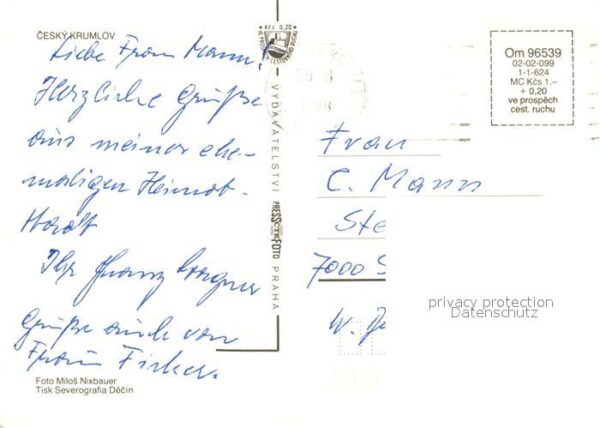 ČESKÝ KRUMLOV
Liebe Frau Mann!
Herzliche Grüße
aus meiner ehe-
maligen Heimat-
stadt
Ihr Franz Wagner
Grüße auch von
Frau Fischer.
Foto Miloš Nixbauer
Tisk Severografia Děčín
Kčs 0,20
VYDAVATELSTVÍ PRESSFOTO PRAHA
Om 96539
02-02-099
1-1-624
MC Kčs 1,–
+ 0,20
ve prospěch
cest. ruchu
Frau
C. Mann
Ste
7000 S
W.
privacy protection
Datenschutz